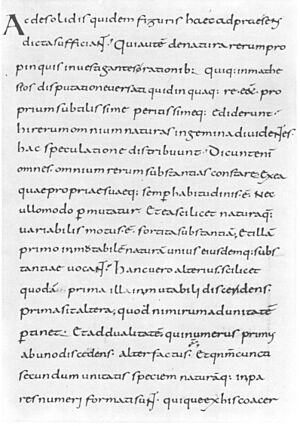 Ac desolidis quidem figuris haec adpraesens
dicta sufficiant. Qui autē denatura rerum pro
pinquis investigantes rationib: quiq: inmathe
seos disputatione versati quid in quaq: re eēt pro
prium subtilissime peritissimeq: ediderunt
hi rerum omnium naturas ingemina dividentes
hac speculatione distribuunt. Dicunt enim
omnes omnium rerum substantias constare ex ea
quae propriae suaeq: semp habitudinis ē. Nec
ullo modo p mutatur. Et ea scilicet naturaq:
variabilis motus ē. sortita substantiā, Et illā
primo inmutabilē naturā unius eiusdemq: subs
tantiae vocant. hanc vero alterius scilicet
quodā prima illa inmutabili discedens
prima sit altera; quod nimirum ad unitatē
ptinet. Et ad dualitatē qui numerus primus
ab uno discedens alter factus. Et qnm cuncti
secundum unitatis speciem naturāq: inpa
res numeri formati sunt quiq: ex his coacer